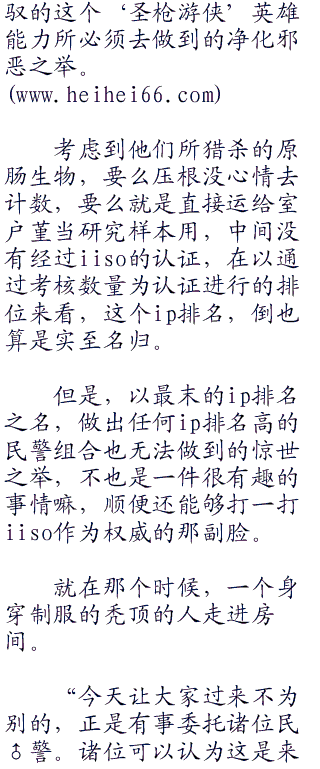 驭的这个‘圣枪游侠’英雄
能力所必须去做到的净化邪
恶之举。
(www.heihei66.com)
考虑到他们所猎杀的原
肠生物，要么压根没心情去
计数，要么就是直接运给室
户堇当研究样本用，中间没
有经过iiso的认证，在以通
过考核数量为认证进行的排
位来看，这个ip排名，倒也
算是实至名归。
但是，以最末的ip排名
之名，做出任何ip排名高的
民警组合也无法做到的惊世
之举，不也是一件很有趣的
事情嘛，顺便还能够打一打
iiso作为权威的那副脸。
就在那个时候，一个身
穿制服的秃顶的人走进房
间。
“今天让大家过来不为
别的，正是有事委托诸位民
♁警。诸位可以认为这是来